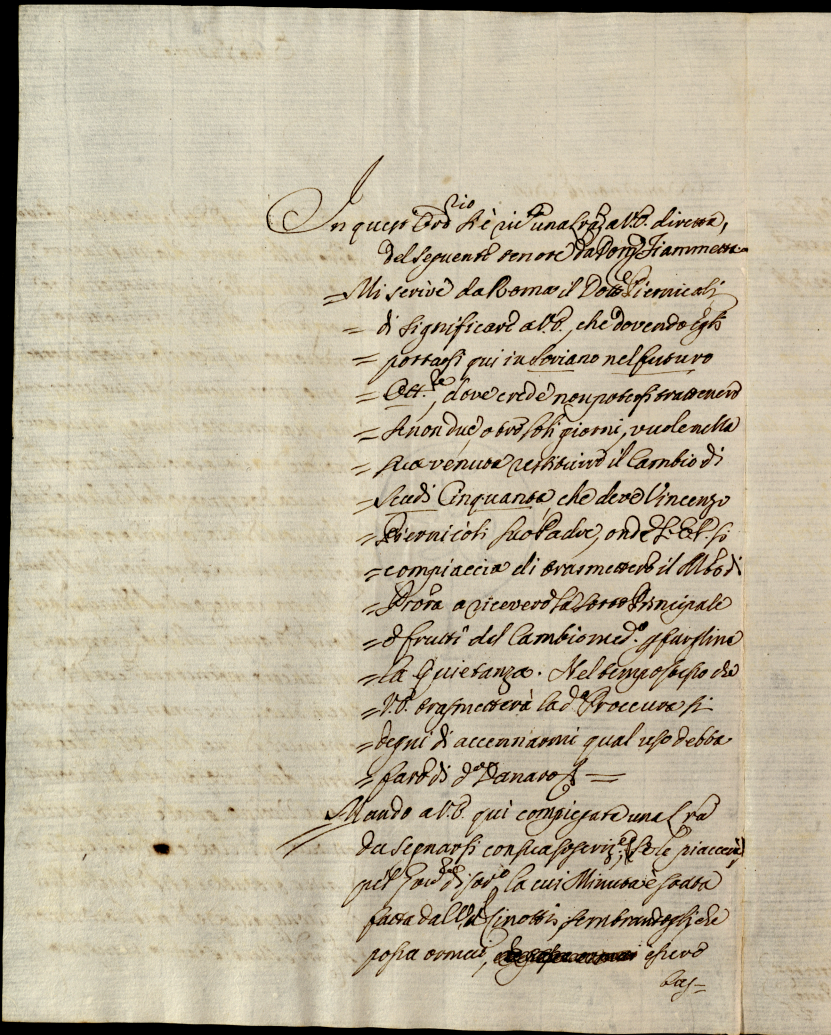 In quest' Ord.rio si è ric.ta una Lra a V.S. diretta,
del seguente tenore da Dom.
= Mi scrive da Roma il Dott.re Piernicoli
= di significare a V.S., che dovendo Egli
= portarsi qui in Soriano nel futuro
= Ott.re, dove crede non potersi trattenere
= se non due, o tre soli giorni, vuole nella
= sua venuta restituire il Cambio di
= Scudi Cinquanta che deve Vincenzo
= Piernicoli suo Padre, onde V.S. si
= compiaccia di trasmettere il di
= Procra a ricevere la Sorte Principale
= e frutti del Cambio med.o p fargline
= la Quietanza. Nel tempo stesso che
= V.S. trasmetterà la d.a Proccura si
= degni di accennarmi qual uso debba
= fare di d.o Danaro =
Mando a V.S. qui compiegata una Lra
da segnarsi con sua soscriz.e, (se le piaccerà)
pel la cui Minuta è stata
fatta dall' Sinotti, sembrandogli che
possa ormai, essere